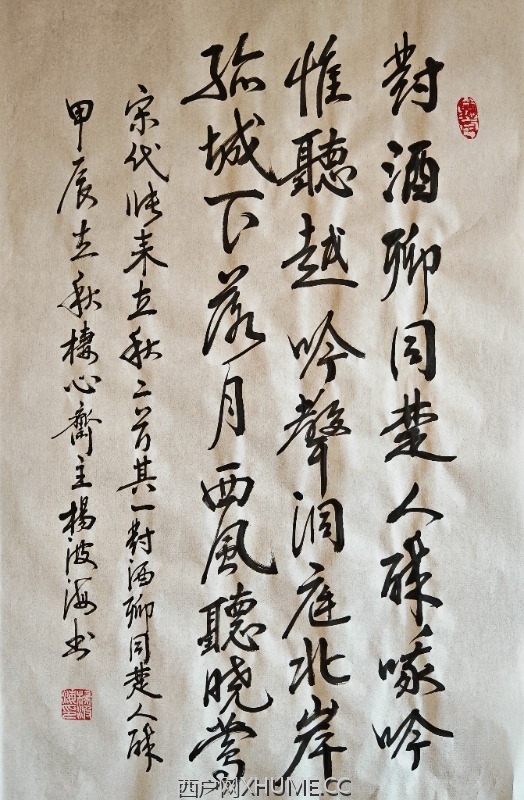 對酒聊同楚人醉啄吟
惟聽越吟聲洞庭北岸
孤城下落月西風聽晓鶯
宋代張耒立秋二首其一對酒聊同楚人醉
甲辰立秋棲心齋主楊波海书
西户网XHUME.CC